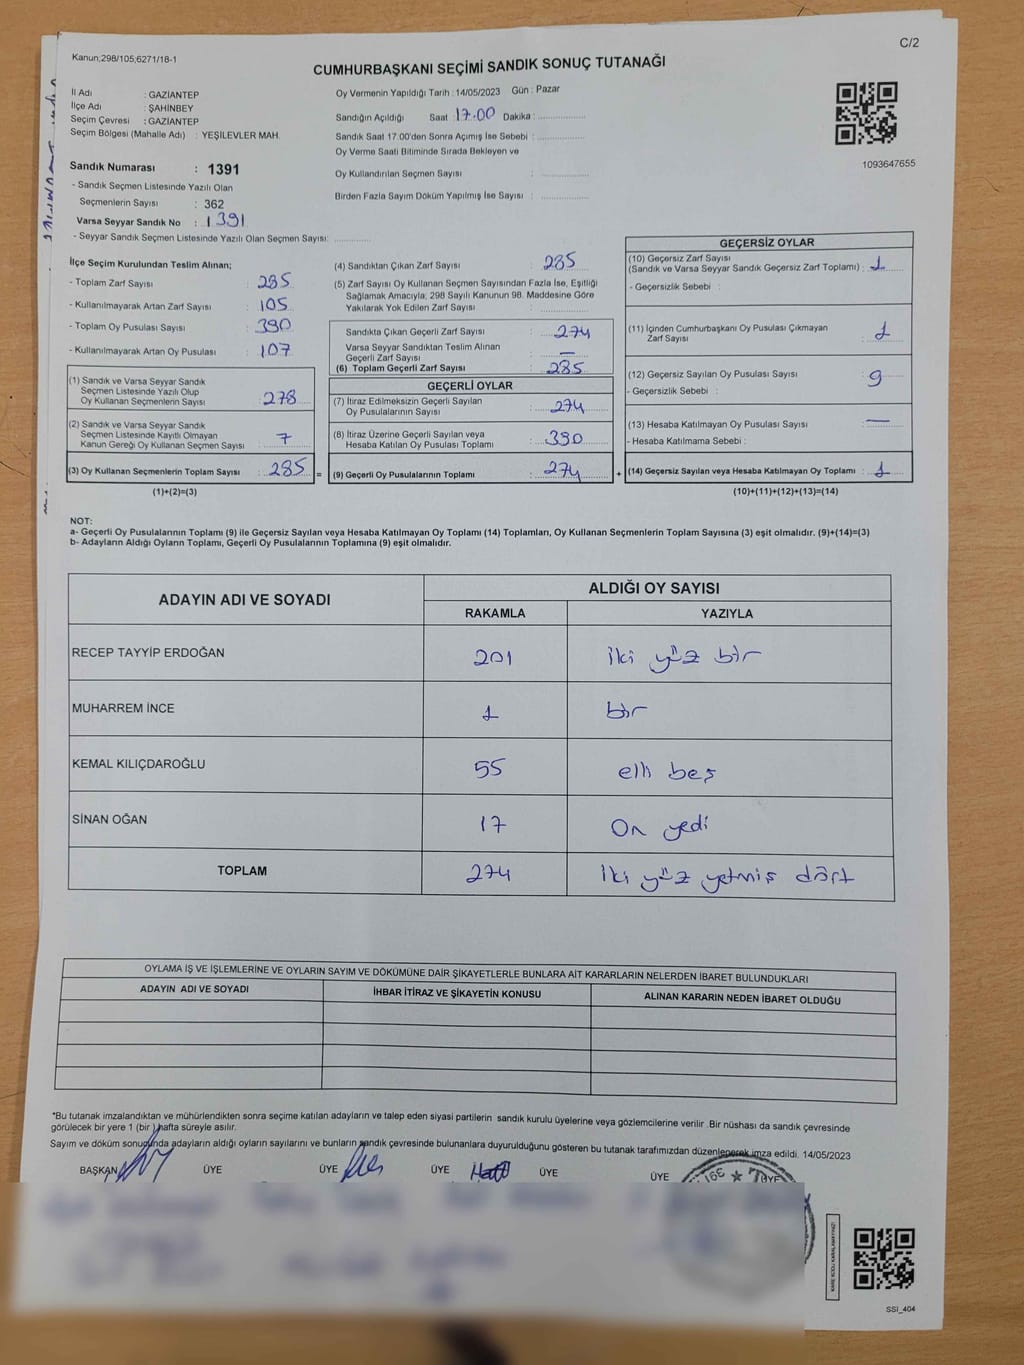 C/2
Kanun;298/105;6271/18-1
CUMHURBAŞKANI SEÇİMİ SANDIK SONUÇ TUTANAĞI
İl Adı : GAZİANTEP
İlçe Adı : ŞAHİNBEY
Seçim Çevresi : GAZİANTEP
Seçim Bölgesi (Mahalle Adı) : YEŞİLEVLER MAH.
Oy Vermenin Yapıldığı Tarih : 14/05/2023 Gün : Pazar
Sandığın Açıldığı Saat 17.00 Dakika :
Sandık Saat 17.00'den Sonra Açımış İse Sebebi :
Oy Verme Saati Bitiminde Sırada Bekleyen ve
Oy Kullandırılan Seçmen Sayısı :
Birden Fazla Sayım Döküm Yapılmış İse Sayısı :
1093647655
Sandık Numarası : 1391
- Sandık Seçmen Listesinde Yazılı Olan
Seçmenlerin Sayısı : 362
Varsa Seyyar Sandık No : 1391
- Seyyar Sandık Seçmen Listesinde Yazılı Olan Seçmen Sayısı:
İlçe Seçim Kurulundan Teslim Alınan;
- Toplam Zarf Sayısı : 285
- Kullanılmayarak Artan Zarf Sayısı : 105
- Toplam Oy Pusulası Sayısı : 390
- Kullanılmayarak Artan Oy Pusulası : 107
(1) Sandık ve Varsa Seyyar Sandık
Seçmen Listesinde Yazılı Olup
Oy Kullanan Seçmenlerin Sayısı : 278
(2) Sandık ve Varsa Seyyar Sandık
Seçmen Listesinde Kayıtlı Olmayan
Kanun Gereği Oy Kullanan Seçmen Sayısı : 7
(3) Oy Kullanan Seçmenlerin Toplam Sayısı : 285 =
(1)+(2)=(3)
(4) Sandıktan Çıkan Zarf Sayısı : 285
(5) Zarf Sayısı Oy Kullanan Seçmen Sayısından Fazla İse, Eşitliği
Sağlamak Amacıyla; 298 Sayılı Kanunun 98. Maddesine Göre
Yakılarak Yok Edilen Zarf Sayısı :
Sandıkta Çıkan Geçerli Zarf Sayısı : 274
Varsa Seyyar Sandıktan Teslim Alınan
Geçerli Zarf Sayısı : —
(6) Toplam Geçerli Zarf Sayısı : 285
GEÇERLİ OYLAR
(7) İtiraz Edilmeksizin Geçerli Sayılan
Oy Pusulalarının Sayısı : 274
(8) İtiraz Üzerine Geçerli Sayılan veya
Hesaba Katılan Oy Pusulası Toplamı : 390
(9) Geçerli Oy Pusulalarının Toplamı : 274 +
GEÇERSİZ OYLAR
(10) Geçersiz Zarf Sayısı
(Sandık ve Varsa Seyyar Sandık Geçersiz Zarf Toplamı) : 1
- Geçersizlik Sebebi :
(11) İçinden Cumhurbaşkanı Oy Pusulası Çıkmayan
Zarf Sayısı : 1
(12) Geçersiz Sayılan Oy Pusulası Sayısı : 9
- Geçersizlik Sebebi :
(13) Hesaba Katılmayan Oy Pusulası Sayısı : —
- Hesaba Katılmama Sebebi :
(14) Geçersiz Sayılan veya Hesaba Katılmayan Oy Toplamı : 1
(10)+(11)+(12)+(13)=(14)
NOT:
a- Geçerli Oy Pusulalarının Toplamı (9) ile Geçersiz Sayılan veya Hesaba Katılmayan Oy Toplamı (14) Toplamları, Oy Kullanan Seçmenlerin Toplam Sayısına (3) eşit olmalıdır. (9)+(14)=(3)
b- Adayların Aldığı Oyların Toplamı, Geçerli Oy Pusulalarının Toplamına (9) eşit olmalıdır.
ADAYIN ADI VE SOYADI ALDIĞI OY SAYISI
RAKAMLA YAZIYLA
RECEP TAYYİP ERDOĞAN 201 iki yüz bir
MUHARREM İNCE 1 bir
KEMAL KILIÇDAROĞLU 55 elli beş
SİNAN OĞAN 17 On yedi
TOPLAM 274 İki yüz yetmiş dört
OYLAMA İŞ VE İŞLEMLERİNE VE OYLARIN SAYIM VE DÖKÜMÜNE DAİR ŞİKAYETLERLE BUNLARA AİT KARARLARIN NELERDEN İBARET BULUNDUKLARI
ADAYIN ADI VE SOYADI İHBAR İTİRAZ VE ŞİKAYETİN KONUSU ALINAN KARARIN NEDEN İBARET OLDUĞU
*Bu tutanak imzalandıktan ve mühürlendikten sonra seçime katılan adayların ve talep eden siyasi partilerin sandık kurulu üyelerine veya gözlemcilerine verilir .Bir nüshası da sandık çevresinde
görülecek bir yere 1 (bir ) hafta süreyle asılır.
Sayım ve döküm sonucunda adayların aldığı oyların sayılarını ve bunların sandık çevresinde bulunanlara duyurulduğunu gösteren bu tutanak tarafımızdan düzenlenerek imza edildi. 14/05/2023
BAŞKAN ÜYE ÜYE ÜYE ÜYE ÜYE ÜYE
SSI_404